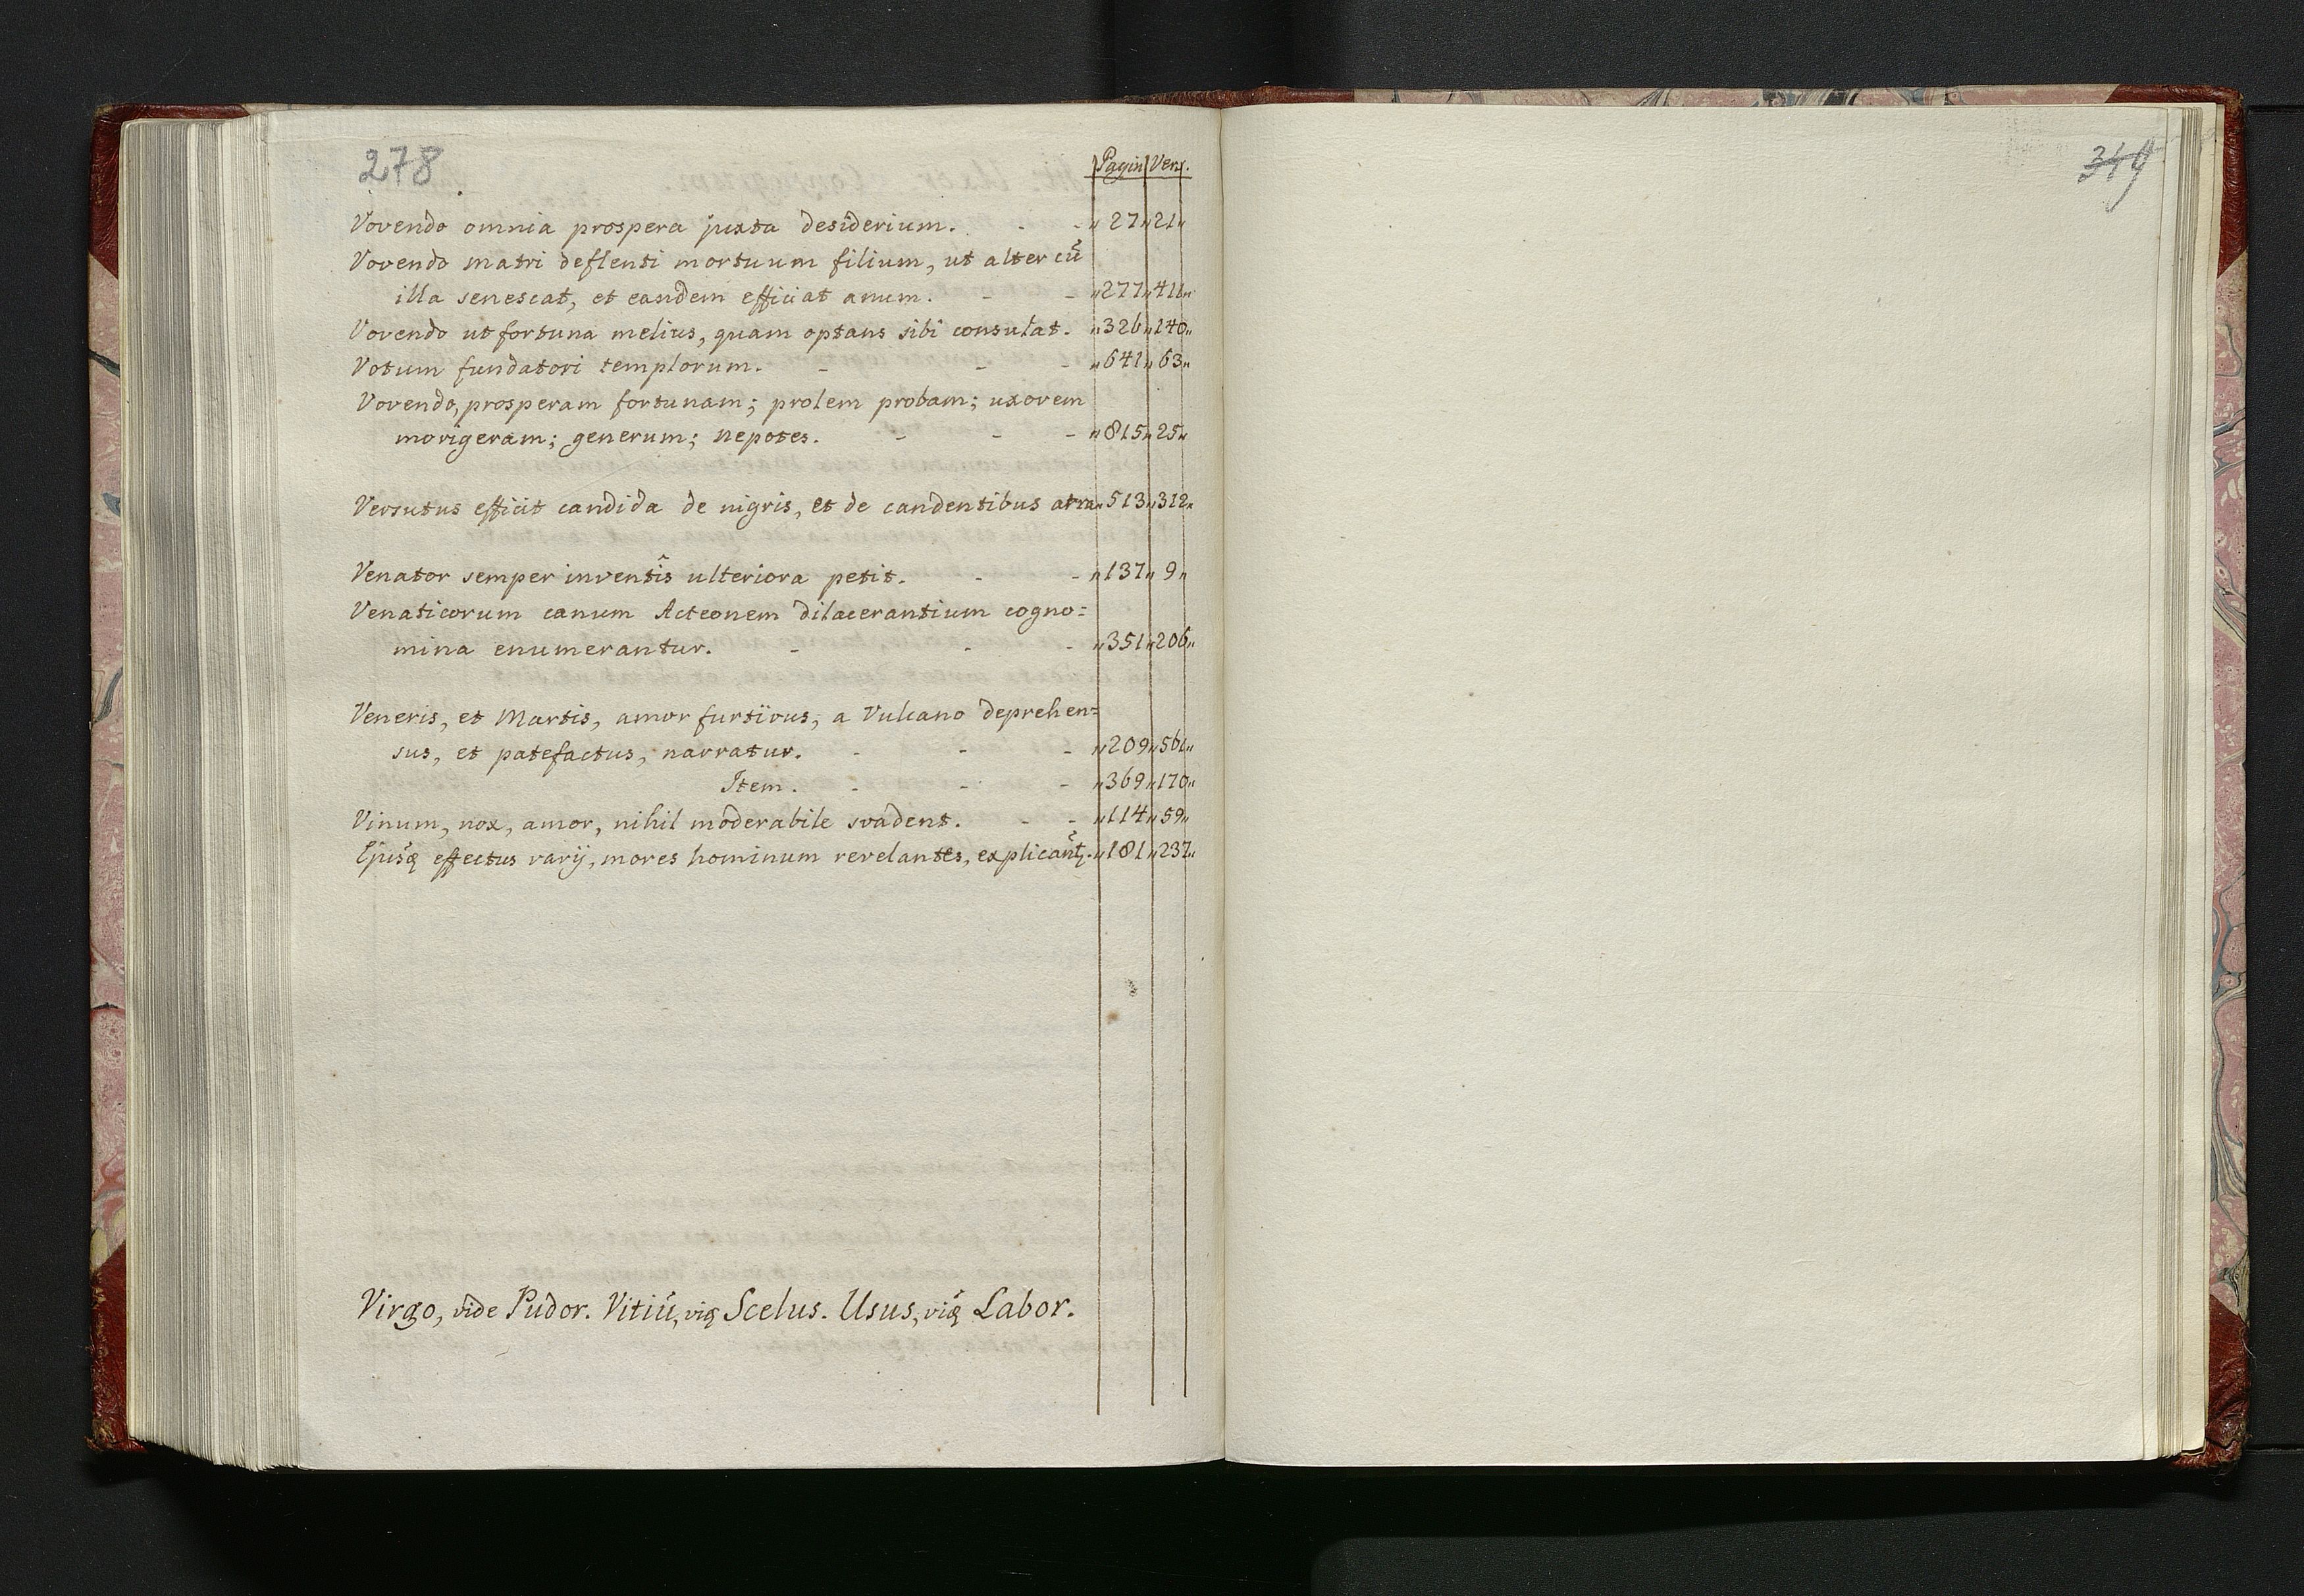 278
Pagin Vers.
Vovendo omnia prospera juxta desiderium. - - „27„21„
Vovendo matri deflenti mortuum filium, ut alter cũ
illa senescat, et eandem efficiat anum. - - „277„411„
Vovendo ut fortuna melius, quam optans sibi consulat. „326„140„
Votum fundatori templorum. - - - „641„63„
Vovendo, prosperam fortunam; prolem probam; uxorem
morigeram; generum; nepotes. - - - „815„25„
Versutus efficit candida de nigris, et de candentibus atra „513„312„
Venator semper inventîs ulteriora petit. - - „137„9„
Venaticorum canum Acteonem dilacerantium cogno=
mina enumerantur. - - - „351„206„
Veneris, et Martis, amor furtivus, a Vulcano deprehen=
sus, et patefactus, narratur. - - - „209„561„
Item. - - - „369„170„
Vinum, nox, amor, nihil moderabile svadent. - - „114„59„
Ejusq̃ effectus varij, mores hominum revelantes, explicant̃. „181„237„
Virgo, vide Pudor. Vitiũ, viđ Scelus. Usus, viđ Labor.